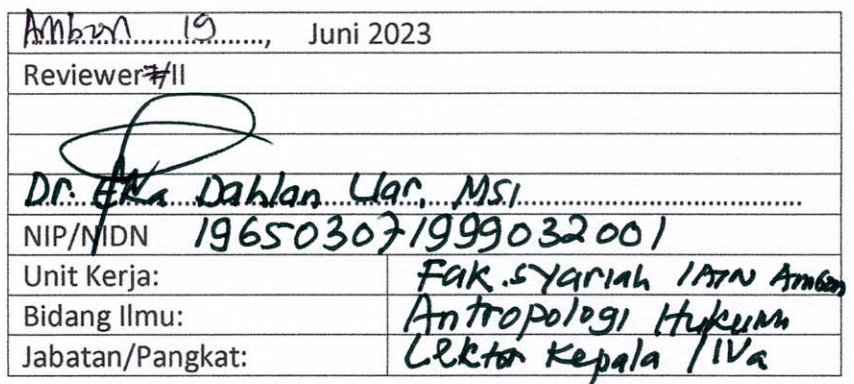 Ambon 19, Juni 2023
Reviewer I/II
Dr. Eka Dahlan Uar, MSi
NIP/NIDN 196503071999032001
Unit Kerja: Fak. Syariah IAIN Ambon
Bidang Ilmu: Antropologi Hukum
Jabatan/Pangkat: Lektor Kepala / IVa